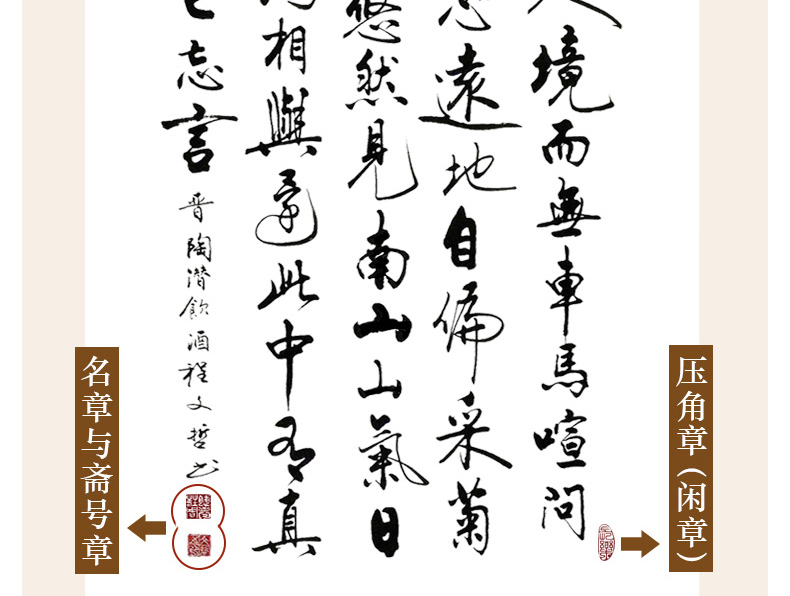 人境而無車馬喧問
心遠地自偏采菊
悠然見南山山氣日
相與還此中有真
忘言
晋陶潛飲酒程文哲书
压角章(闲章)
名章与斋号章